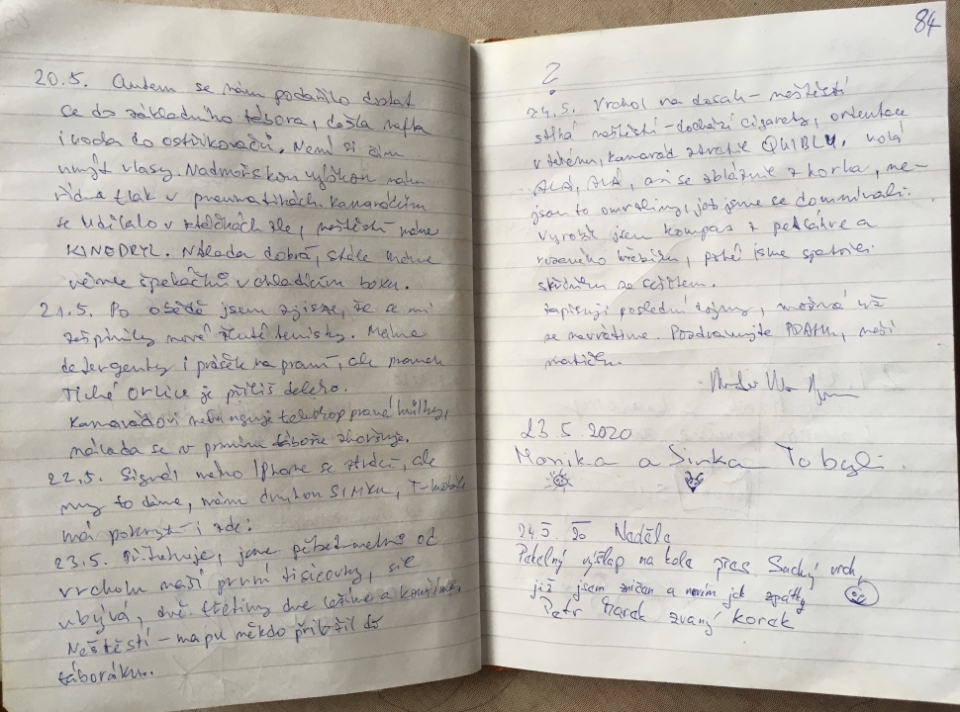 20.5. Autem se nám podařilo dostat
se do základního tábora, došla nafta
i voda do ostřikovačů. Není si čím
umýt vlasy. Nadmořskou výškou nám
řídne tlak v pneumatikách. Kamarádům
se udělalo v zatáčkách zle, naštěstí máme
KINEDRYL. Nálada dobrá, stále máme
věnec špekáčků v chladícím boxu.
21.5. Po obědě jsem zjistil, že se mi
zašpinily nové žluté tenisky. Máme
detergenty i prášek na praní, ale pramen
Tiché Orlice je příliš daleko.
Kamarádovi nefunguje teleskop pravé hůlky,
nálada se v prvním táboře zhoršuje.
22.5. Signál mého IPhone se ztrácí, ale
my to dáme, mám druhou SIMKu, T-mobile
má pokrytí i zde!
23.5. jsme pět set metrů od
vrcholu naší první tisícovky, sil
ubývá, dvě třetiny dne ležíme a kouříme.
Neštěstí - mapu někdo přiložil do
táboráku.
84
?
24.5. Vrchol na dosah - neštěstí
stíhá neštěstí - dochází cigarety, orientace
v terénu, kamarád ztratil QUIBLY, volá
ALÁ, ALÁ, asi se zbláznil z horka, ne-
jsou to omrzliny, jak jsme se domnívali.
Vyrobil jsem kompas z petláhve a
rezavého hřebíku, právě jsme spatřili
skříňku se sešitem.
Zapisuji poslední dojmy, možná už
se nevrátíme. Pozdravujte PRAHU, naši
matičku.
23.5.2020
Monika a Simka To byli.
24.5. 20 Neděle
Pekelný výšlap na kole přes Suchý vrch,
již jsem zničen a nevím jak zpátky
Petr Marek zvaný Korek